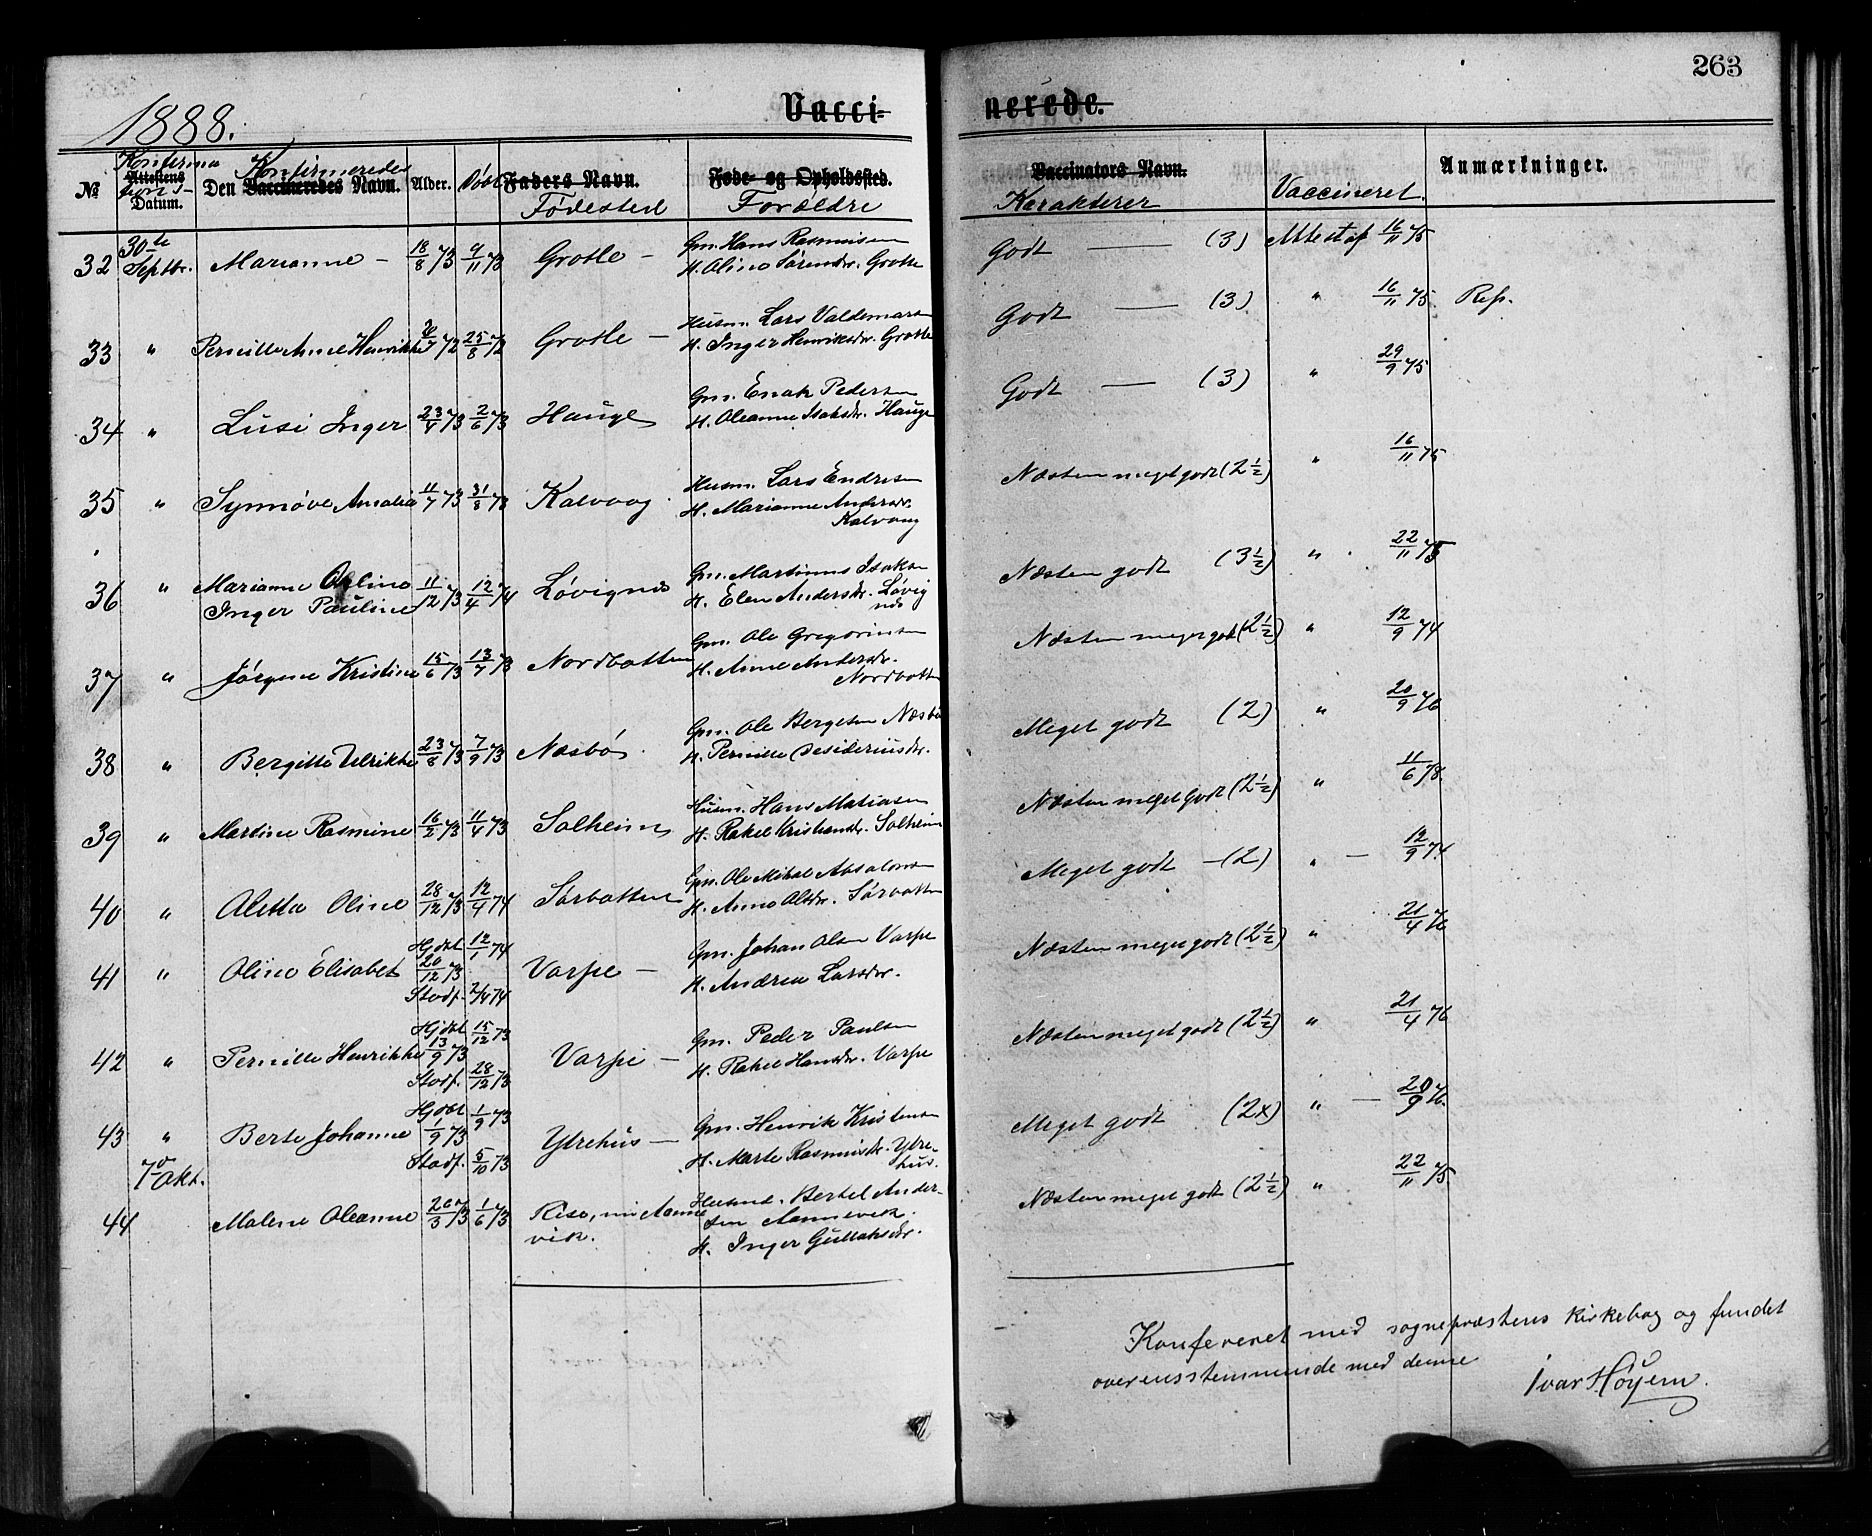 263
1888.
Vacci-
nerede.
No
Konfirma
Attestens
tions-
Datum.
Konfirmeredes
Den Vaccineredes Navn.
Alder.
Døbt
Faders Navn.
Fødested
Føde- og Opholdssted.
Forældre
Vaccinators Navn.
Karakterer
Vaccineret
Anmærkninger.
32 30te Septbr. Marianne - 18/8 73 9/11 73 Grotle - Gm. Hans Rasmusen
H. Oline Sørensdr. Grotle
Godt — (3) Attest af 16/11 75
33 " Pernille Anne Henrikke /7 72 25/8 72 Grotle - Husm. Lars Valdemarsen
H. Inger Henriksdr. Grotle
Godt — (3) " 16/11 75 Rep.
34 " Lusi Inger 23/4 73 2/6 73 Hauge Gm. Enok Pedersen
H. Oleanne Isaksdr. Hauge
Godt — (3) " 29/9 75
35 " Synnøve Amalia 11/7 73 31/8 73 Kalvaag Husm. Lars Endresen
H. Marianne Andersdr.
Kalvaag
Næsten meget godt (2½) " 16/11 75
36 " Marianne Oline
Inger Pauline 11/12 73 12/4 74 Løvignes Gm. Martinus Isaksen
H. Elen Andersdr. Løvig
nes
Næsten godt (3½) " 22/11 75
37 " Jørgine Kristine 15/6 73 13/7 73 Nordbotten Gm. Ole Gregoriusen
H. Anne Andersdr.
Nordbotten
Næsten meget godt (2½) " 12/9 74
38 " Bergitte Ulrikke 23/8 73 7/9 73 Næsbø Gm. Ole Bergesen Næsbø
H. Pernille Desideriusdr.
Meget godt (2) " 20/9 76
39 " Martine Rasmine 16/2 73 11/4 73 Solheim Husm. Hans Matiasen
H. Rakel Kristensdr. Solheim
Næsten meget godt (2½) " 11/6 78.
40 " Aletta Oline 28/12 73 12/4 74 Sørbotten Gm. Ole Mikal Absalonsen
H. Anne Olsdr. Sørbotten
Meget godt — (2) " — 12/9 74
41 " Oline Elisabet Hjdøbt 20/12 73 Stadf. 12/1 74 2/4 74 Varpe - Gm. Johan Olsen Varpe
H. Andrea Larsdr.
Næsten meget godt (2½) " 21/4 76
42 " Pernille Henrikke Hjdøbt 13/9 73 Stadf. 15/12 73 28/12 73 Varpe - Gm. Peder Paulsen
H. Rakel Hansdr. Varpe
Næsten meget godt (2½) " 21/4 76
43 " Berte Johanne Hjdøbt 1/9 73 Stadf. 1/9 73 5/10 73 Ytrehus - Gm. Henrik Kristensen
H. Marte Rasmusdr. Ytre-
hus.
Meget godt (2x) " — 20/9 76.
7de Okt.
44 Malene Oleanne 20/3 73 1/6 73 Rise, nu Aanne
vik. Husmd. Bertel Ander-
sen Aannevik.
H. Inger Gullaksdr.
Næsten meget godt (2½) " 22/11 75
Konfereret med sognepræstens kirkebog og fundet
overensstemmende med denne
Ivar Høyem.